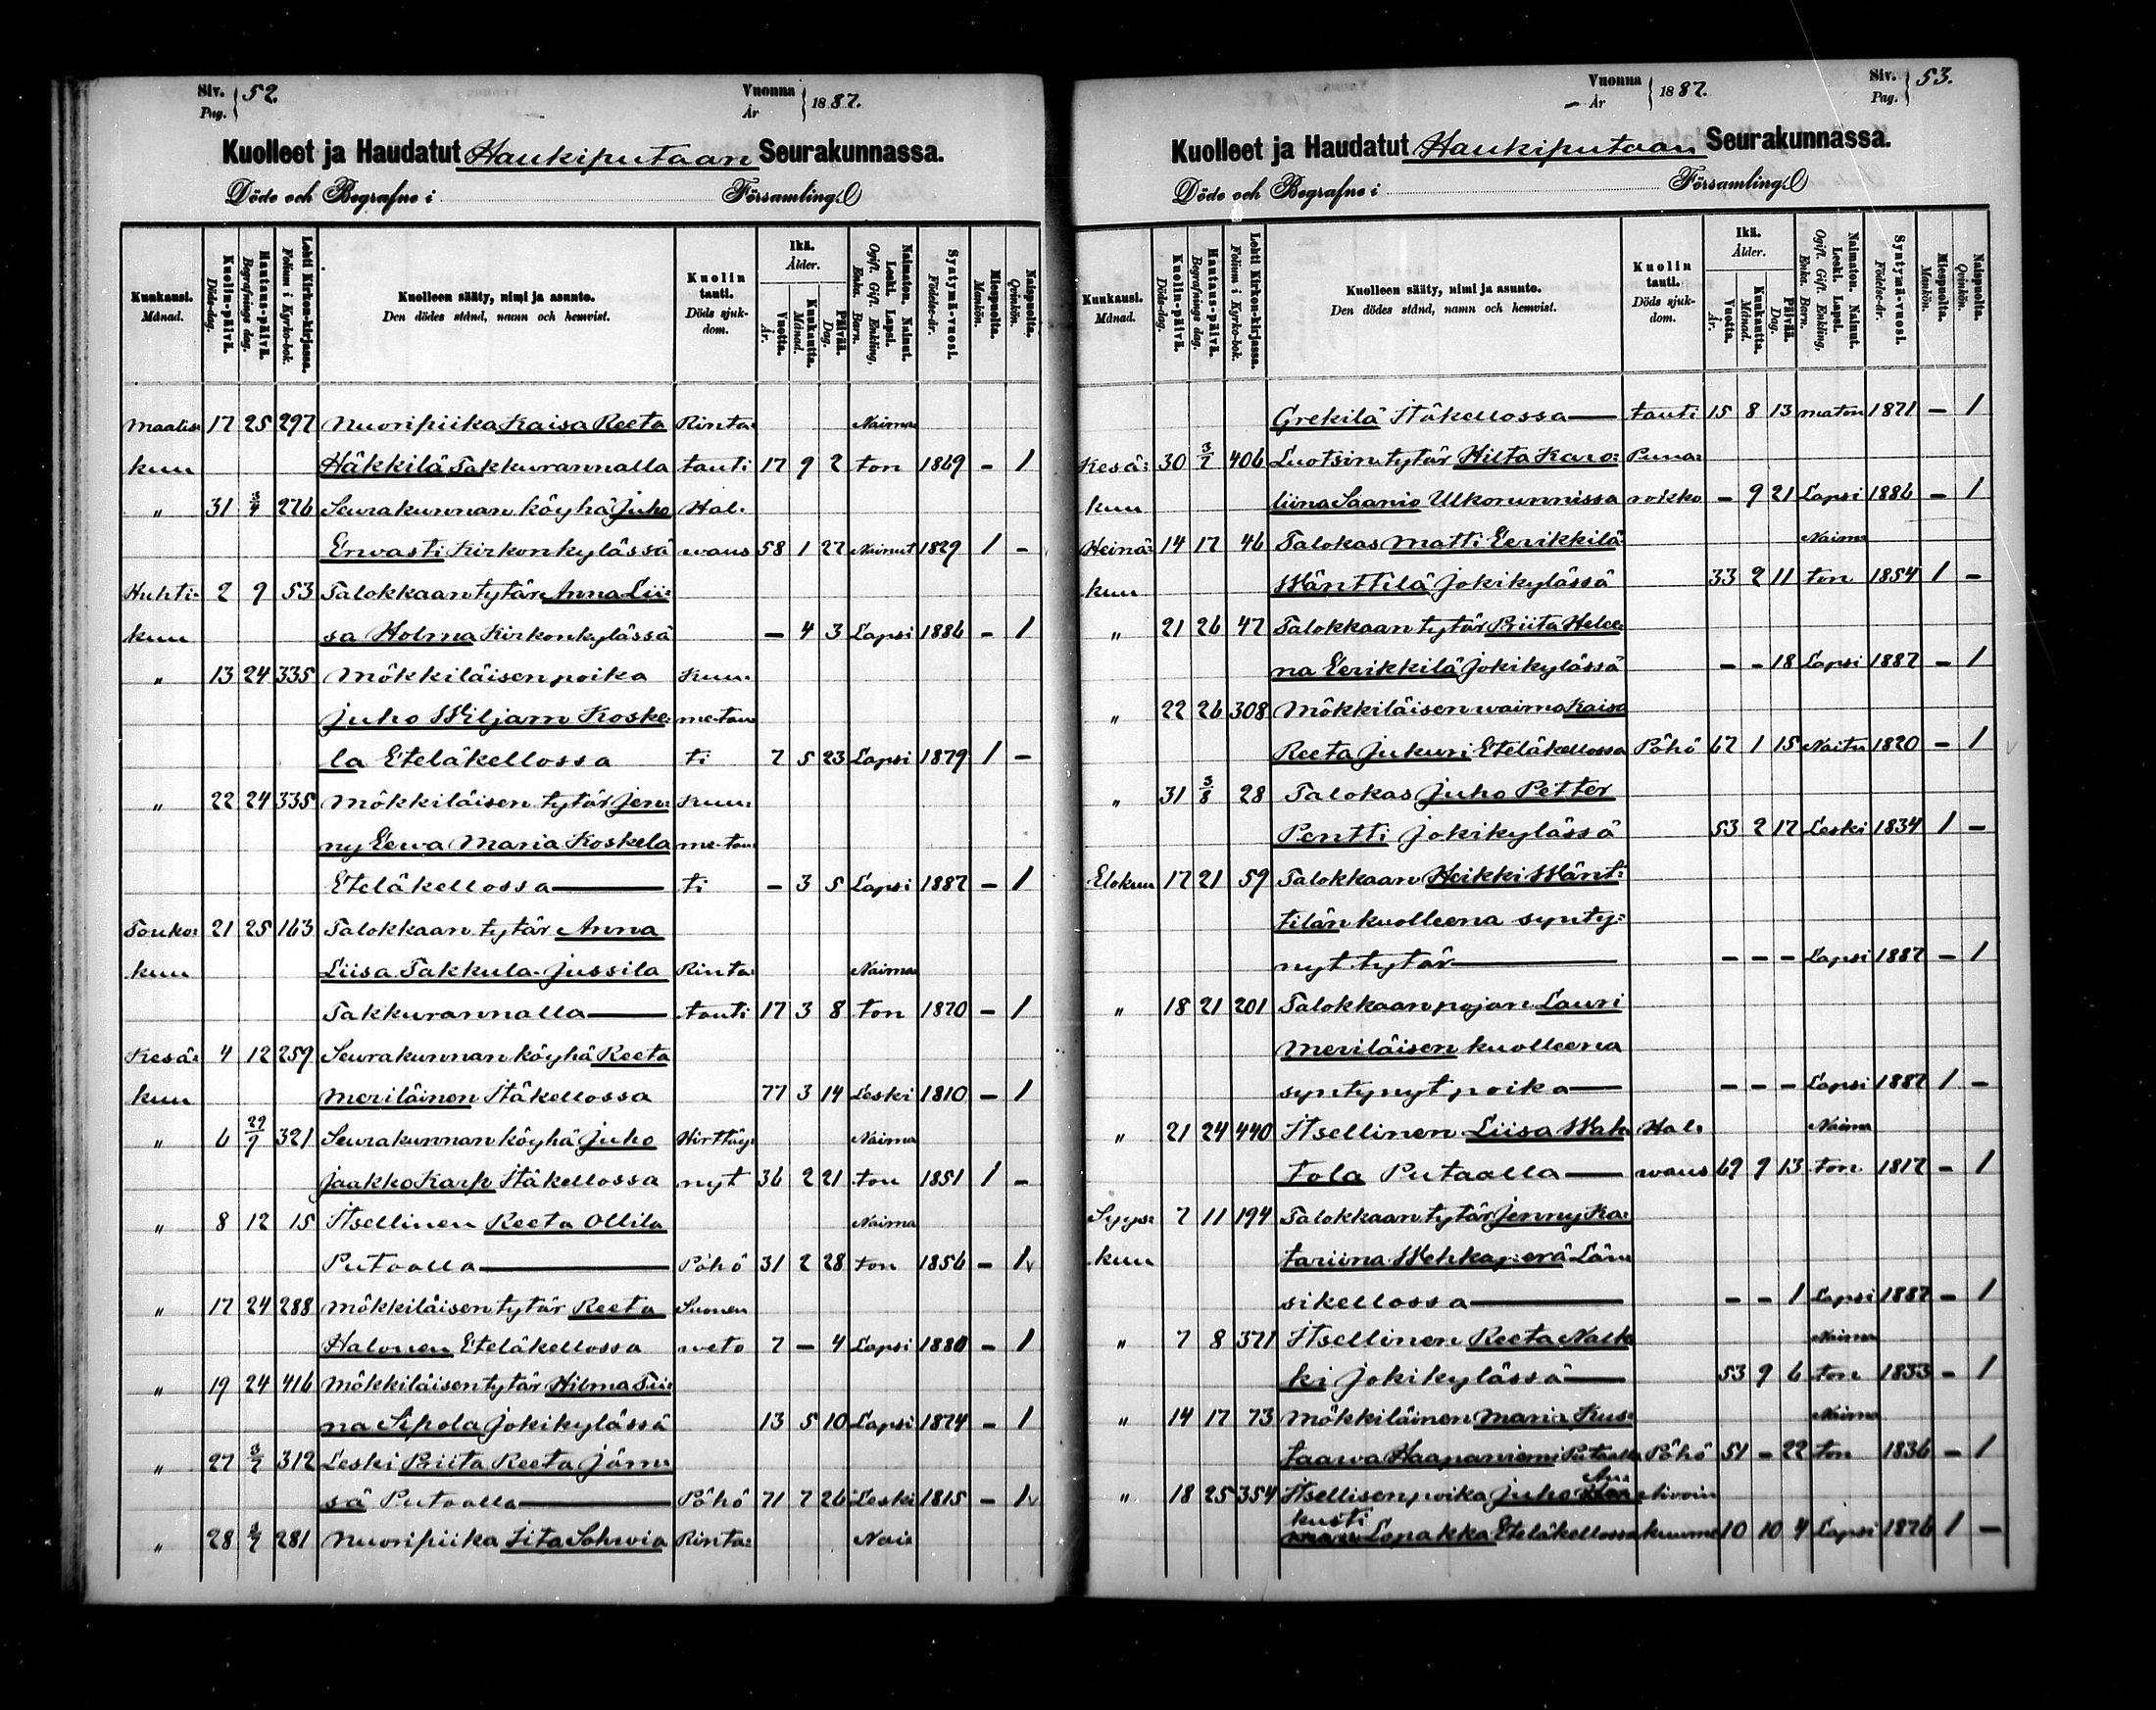 Siv. Pag. 52. Vuonna År 1887.
Kuolleet ja Haudatut Haukiputaan Seurakunnassa.
Döde och Begrafne i Församling
Kuukausi. Månad. Kuolin-päivä. Döds-dag. Hautaus-päivä. Begrafnings dag. Lehti Kirkon-kirjassa. Folium i Kyrko-bok. Kuolleen sääty, nimi ja asunto. Den dödes stånd, namn och hemvist. Kuolin tauti. Döds sjuk-dom. Ikä. Ålder. Vuotta. År. Kuukautta. Månad. Päivää. Dag. Naimaton. Nainut. Leski. Lapsi. Ogift. Gift. Enkling, Enka. Barn. Syntymä-vuosi. Födelse-år. Miespuolta. Mankön. Naispuolta. Qvinkön.
Maalis: 17 25 297 Nuoripiika Kaisa Reeta Rinta: Naima
kuu Häkkilä Takkurannalla tauti 17 9 2 ton 1869 - 1
" 31 3/4 276 Seurakunnan köyhä Juho Hal:
Erwasti Kirkonkylässä waus 58 1 27 Nainut 1829 1 -
Huhti: 2 9 53 Talokkaan tytär Anna Lii:
kuu sa Holma Kirkonkylässä - 4 3 Lapsi 1886 - 1
" 13 24 335 Mökkiläisen poika Kuu:
Juho Wiljam Koske: me-tau
la Eteläkellossa ti 7 5 23 Lapsi 1879 1 -
" 22 24 335 Mökkiläisen tytär Jen: Kuu:
ny Eewa Maria Koskela me-tau:
Eteläkellossa ti - 3 5 Lapsi 1887 - 1
Touko: 21 25 163 Talokkaan tytär Anna
kuu Liisa Takkula-Jussila Rinta: Naima
Takkurannalla tauti 17 3 8 ton 1870 - 1
Kesä: 4 12 259 Seurakunnan köyhä Reeta
kuu Meriläinen Itäkellossa 77 3 14 Leski 1810 - 1
" 6 29/7 321 Seurakunnan köyhä Juho Hirttäy: Naima
Jaakko Karp Itäkellossa nyt 36 2 21 ton 1851 1 -
" 8 12 15 Itsellinen Reeta Ollila Naima
Putaalla Pöhö 31 2 28 ton 1856 - 1 v
" 17 24 288 Mökkiläisen tytär Reeta Suonen
Halonen Eteläkellossa weto 7 - 4 Lapsi 1880 - 1
" 19 24 416 Mökkiläisen tytär Hilma Tii:
na Sipola Jokikylässä 13 5 10 Lapsi 1874 - 1
" 27 3/7 312 Leski Priita Reeta Jäm:
sä Putaalla Pöhö 71 7 26 Leski 1815 - 1 v
" 28 3/7 281 Nuoripiika Iita Sohwia Rinta: Nai:
Siv. Pag. 53. Vuonna År 1887.
Kuolleet ja Haudatut Haukiputaan Seurakunnassa.
Döde och Begrafne i Församling
Kuukausi. Månad. Kuolin-päivä. Döds-dag. Hautaus-päivä. Begrafnings dag. Lehti Kirkon-kirjassa. Folium i Kyrko-bok. Kuolleen sääty, nimi ja asunto. Den dödes stånd, namn och hemvist. Kuolin tauti. Döds sjuk-dom. Ikä. Ålder. Vuotta. År. Kuukautta. Månad. Päivää. Dag. Naimaton. Nainut. Leski. Lapsi. Ogift. Gift. Enkling, Enka. Barn. Syntymä-vuosi. Födelse-år. Miespuolta. Mankön. Naispuolta. Qvinkön.
Grekilä Itäkellossa tauti 15 8 13 maton 1871 - 1
Kesä: 30 3/7 406 Luotsin tytär Hilta Karo: Puna:
kuu liina Saanio Ulkorunnissa rokko - 9 21 Lapsi 1886 - 1
Heinä: 14 17 46 Talokas Matti Eerikkilä Naima
kuu Wänttilä Jokikylässä 33 2 11 ton 1854 1 -
" 21 26 47 Talokkaan tytär Priita Helee:
na Eerikkilä Jokikylässä - - 18 Lapsi 1887 - 1
" 22 26 308 Mökkiläisen waimo Kaisa
Reeta Jukuri Eteläkellossa Pöhö 67 1 15 Naitu 1820 - 1
" 31 3/8 28 Talokas Juho Petter
Pentti Jokikylässä 53 2 17 Leski 1834 1 -
Elokuu 17 21 59 Talokkaan Heikki Wänt:
tilän kuolleena synty:
nyt tytär - - - Lapsi 1887 - 1
" 18 21 201 Talokkaan pojan Lauri
Meriläisen kuolleena
syntynyt poika - - - Lapsi 1887 1 -
" 21 24 440 Itsellinen Liisa Wah: Hal: Naima
tola Putaalla waus 69 9 13 ton 1817 - 1
Syys: 7 11 194 Talokkaan tytär Jenny Ka:
kuu tariina Wehkaperä Län:
sikellossa - - 1 Lapsi 1887 - 1
" 7 8 371 Itsellinen Reeta Nalk
ki Jokikylässä 53 9 6 ton 1833 - 1
" 14 17 73 Mökkiläinen Maria Kus: Naima
taawa Haapaniemi Putaalla Pöhö 51 - 22 ton 1836 - 1
" 18 25 354 Itsellisen poika Juho Au: Aivoin
kusti Lopakka Eteläkellossa kuume 10 10 4 Lapsi 1876 1 -